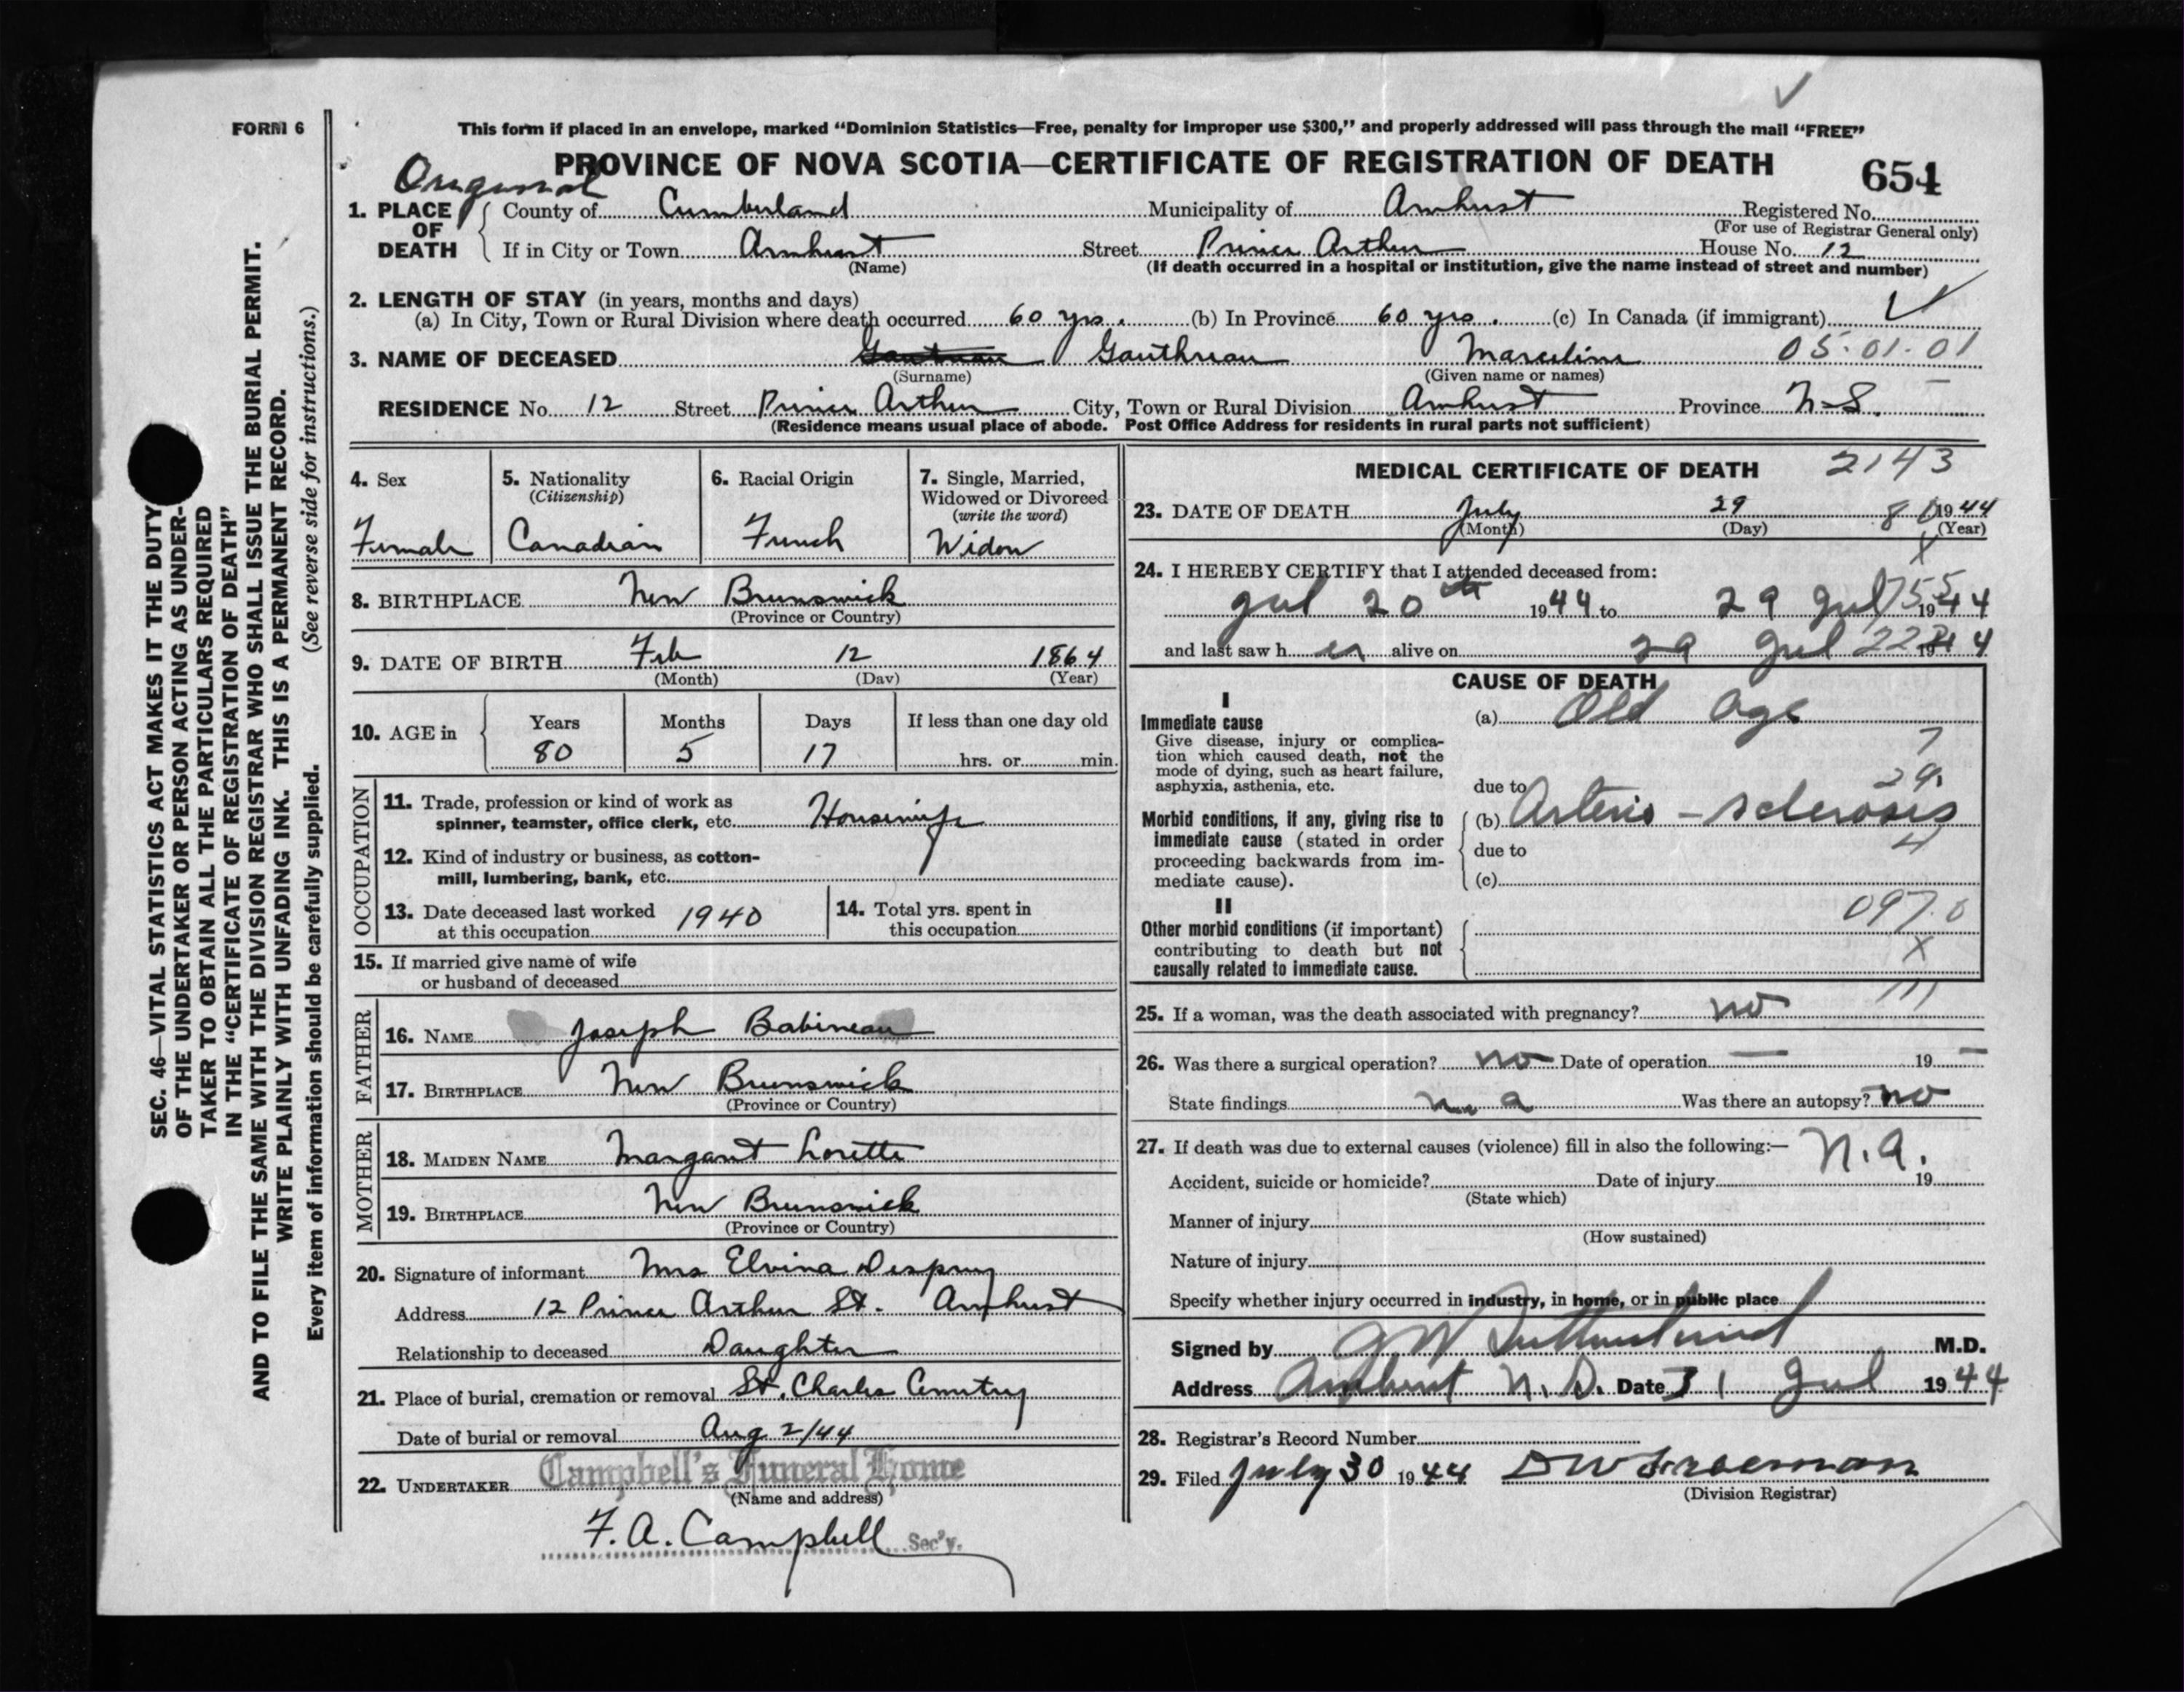 FORM 6
This form if placed in an envelope, marked "Dominion Statistics—Free, penalty for improper use $300," and properly addressed will pass through the mail "FREE"
PROVINCE OF NOVA SCOTIA—CERTIFICATE OF REGISTRATION OF DEATH 654
Original
1. PLACE OF DEATH County of Cumberland Municipality of Amherst Registered No.
(For use of Registrar General only)
If in City or Town Amherst Street Prince Arthur House No. 12
(Name) (If death occurred in a hospital or institution, give the name instead of street and number)
2. LENGTH OF STAY (in years, months and days)
(a) In City, Town or Rural Division where death occurred 60 yrs. (b) In Province 60 yrs. (c) In Canada (if immigrant)
3. NAME OF DECEASED Gauthreau Marceline 05-01-01
(Surname) (Given name or names)
RESIDENCE No. 12 Street Prince Arthur City, Town or Rural Division Amherst Province N-S.
(Residence means usual place of abode. Post Office Address for residents in rural parts not sufficient)
4. Sex Female
5. Nationality (Citizenship) Canadian
6. Racial Origin French
7. Single, Married, Widowed or Divorced (write the word) Widow
8. BIRTHPLACE New Brunswick
(Province or Country)
9. DATE OF BIRTH Feb 12 1864
(Month) (Day) (Year)
10. AGE in Years 80 Months 5 Days 17 If less than one day old hrs. or min.
OCCUPATION
11. Trade, profession or kind of work as
spinner, teamster, office clerk, etc. Housewife
12. Kind of industry or business, as cotton-
mill, lumbering, bank, etc.
13. Date deceased last worked
at this occupation 1940
14. Total yrs. spent in
this occupation
15. If married give name of wife
or husband of deceased
FATHER
16. NAME Joseph Babineau
17. BIRTHPLACE New Brunswick
(Province or Country)
MOTHER
18. MAIDEN NAME Margaret Lorette
19. BIRTHPLACE New Brunswick
(Province or Country)
20. Signature of informant Mrs Elvina Despres
Address 12 Prince Arthur St. Amherst
Relationship to deceased Daughter
21. Place of burial, cremation or removal St. Charles Cemetery
Date of burial or removal Aug 2/44
22. UNDERTAKER Campbell's Funeral Home
(Name and address)
F. A. Campbell Sec'y.
MEDICAL CERTIFICATE OF DEATH 2143
23. DATE OF DEATH July 29 1944
(Month) (Day) (Year)
24. I HEREBY CERTIFY that I attended deceased from:
Jul 20th 1944 to 29 Jul 1944
and last saw her alive on 29 Jul 1944
CAUSE OF DEATH
I
Immediate cause
Give disease, injury or complica-
tion which caused death, not the
mode of dying, such as heart failure,
asphyxia, asthenia, etc.
(a) Old age
7
29.
due to
Morbid conditions, if any, giving rise to
immediate cause (stated in order
proceeding backwards from im-
mediate cause).
(b) Arterio-sclerosis
4
due to
(c)
II
Other morbid conditions (if important)
contributing to death but not
causally related to immediate cause.
097.0
X
25. If a woman, was the death associated with pregnancy? no
26. Was there a surgical operation? no Date of operation — 19 —
State findings n a Was there an autopsy? no
27. If death was due to external causes (violence) fill in also the following:— N.A.
Accident, suicide or homicide? Date of injury 19
(State which)
Manner of injury
(How sustained)
Nature of injury
Specify whether injury occurred in industry, in home, or in public place
Signed by G W Sutherland M.D.
Address Amherst N.S. Date 31 Jul 1944
28. Registrar's Record Number
29. Filed July 30 1944 DW Freeman
(Division Registrar)
SEC. 46—VITAL STATISTICS ACT MAKES IT THE DUTY
OF THE UNDERTAKER OR PERSON ACTING AS UNDER-
TAKER TO OBTAIN ALL THE PARTICULARS REQUIRED
IN THE "CERTIFICATE OF REGISTRATION OF DEATH"
AND TO FILE THE SAME WITH THE DIVISION REGISTRAR WHO SHALL ISSUE THE BURIAL PERMIT.
WRITE PLAINLY WITH UNFADING INK. THIS IS A PERMANENT RECORD.
Every item of information should be carefully supplied. (See reverse side for instructions.)